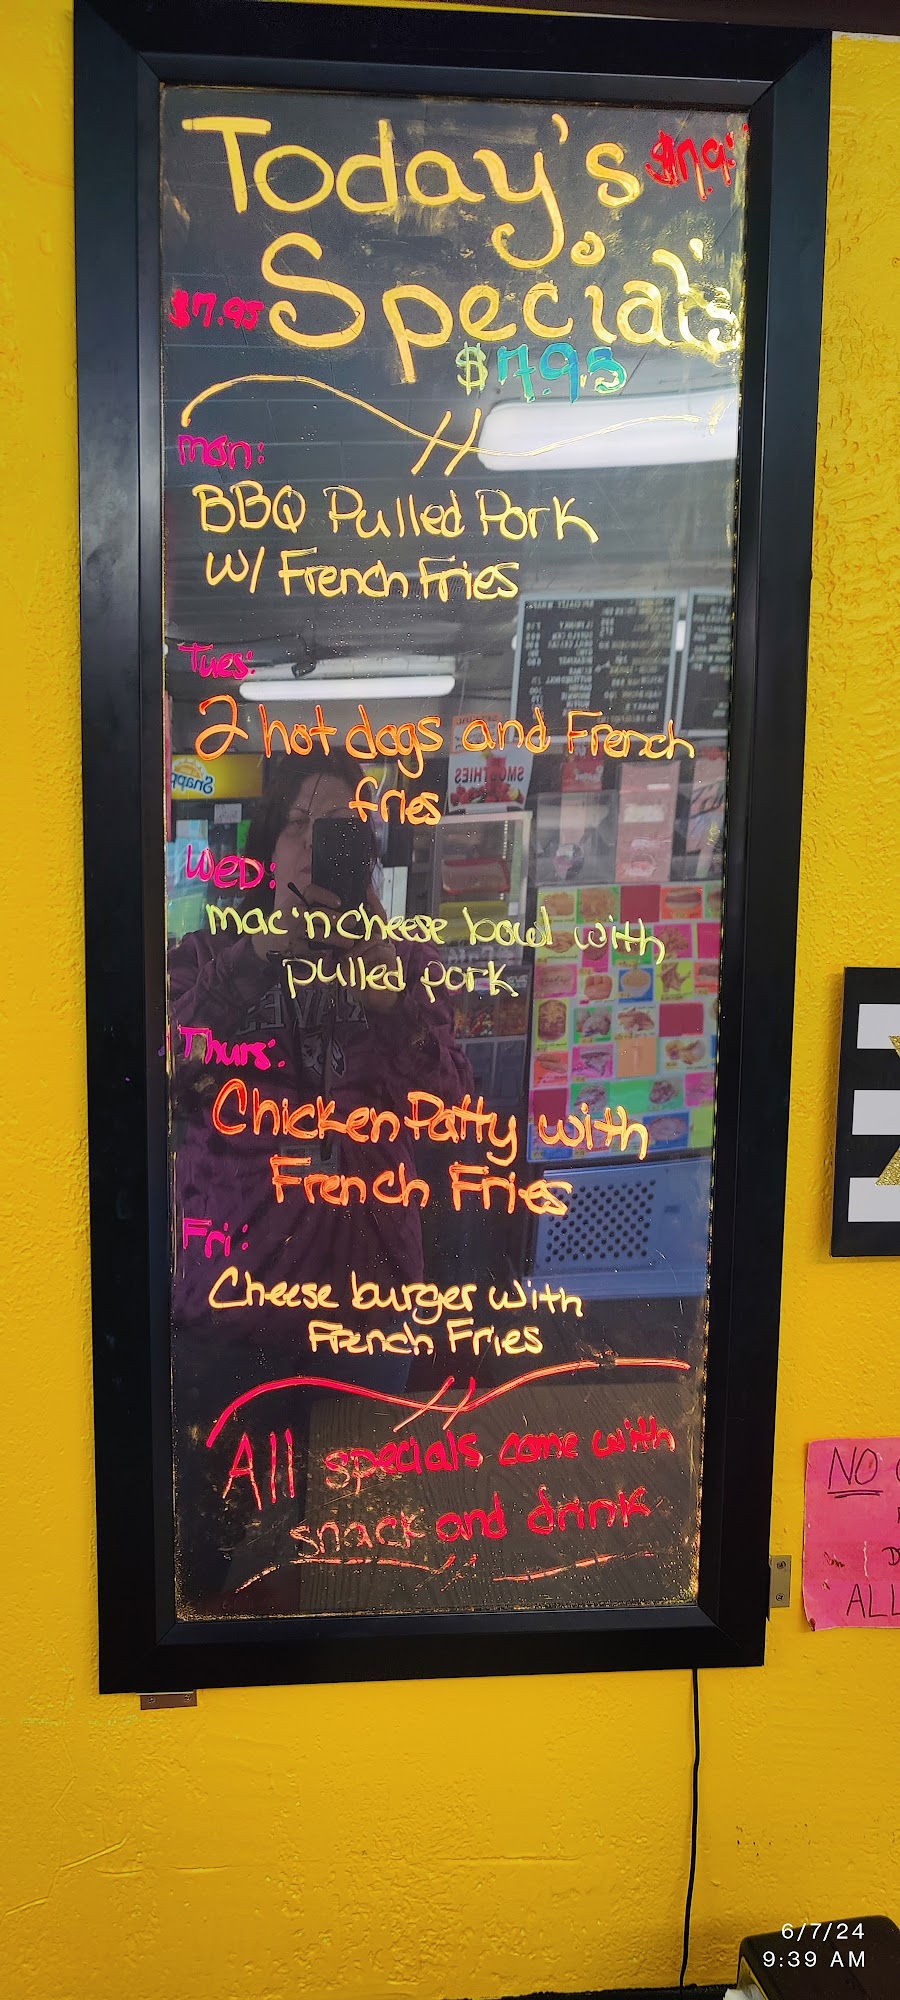 Today's
Special's
$7.95
$7.95
Mon:
BBQ Pulled Pork
w/ French Fries
Tues:
2 hot dogs and French
fries
WED:
mac'n cheese bowl with
pulled pork
Thurs:
Chicken Patty with
French Fries
Fri:
Cheese burger with
French Fries
All specials come with
snack and drink
SMOOTHIES
Snapp
NO
ALL
6/7/24
9:39 AM